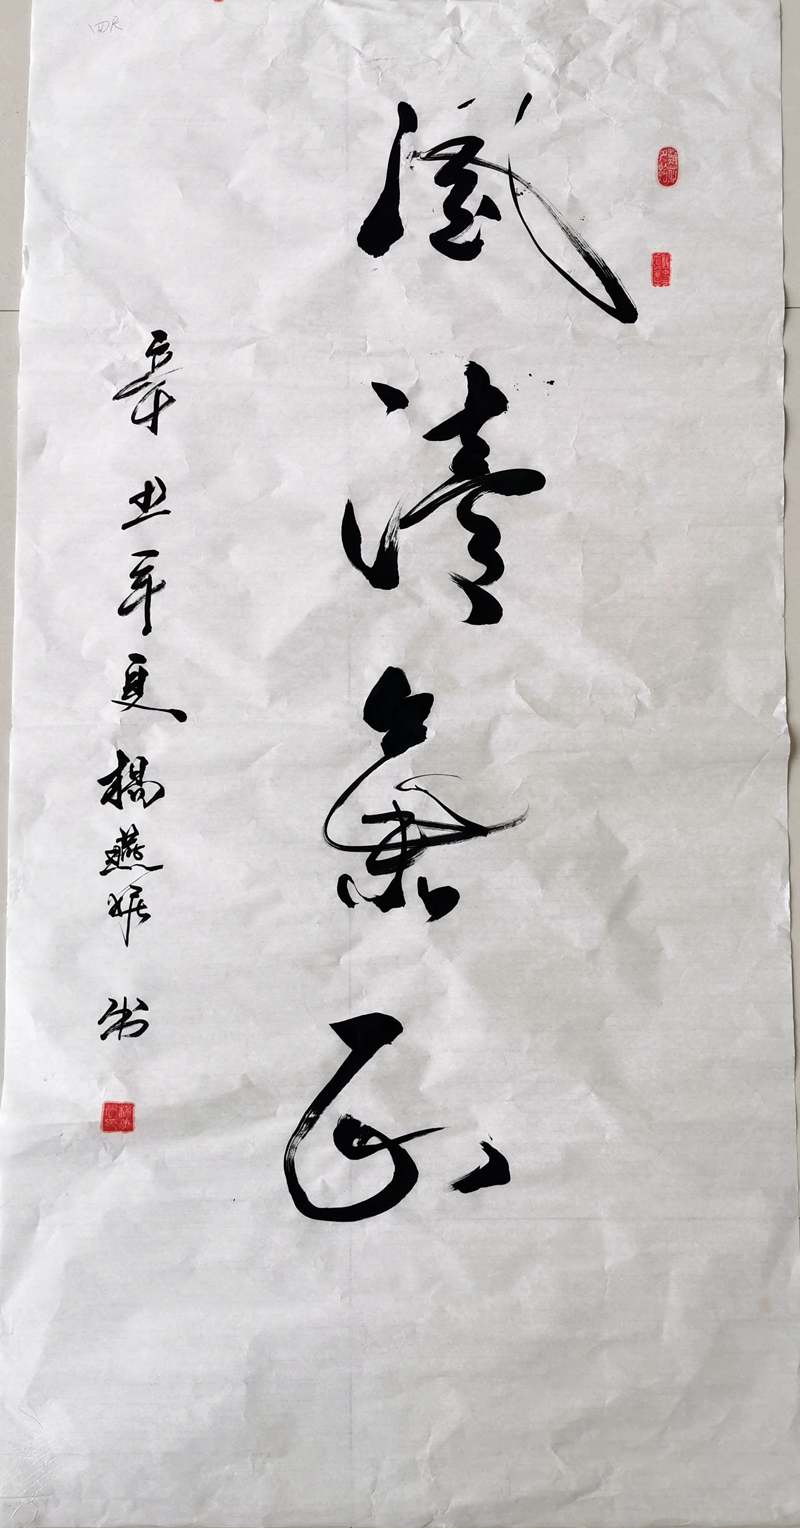 四尺
風清氣正
辛丑年夏楊燕书